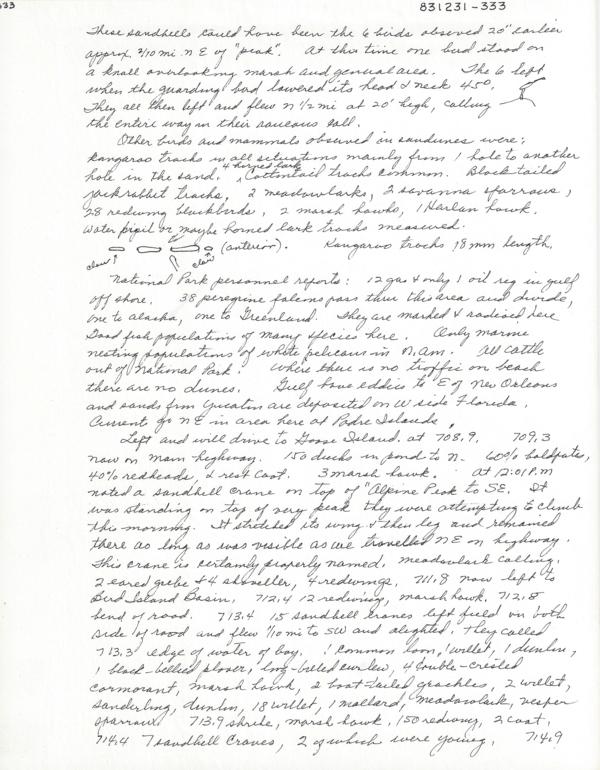 333
831231-333
These sandhills could have been the 6 birds observed 20" earlier
approx. 3/10 mi. N E of "peak". At this time one bird stood on
a knall overlooking marsh and general area. The 6 left
when the guarding bird lowered its head & neck 45°.
They all then left and flew N 1/2 mi at 20' high, calling
the entire way in their raucous call.
Other birds and mammals observed in sandunes were;
Kangaroo tracks in all situations mainly from 1 hole to another
hole in the sand. 4 horned lark, Cottontail tracks common. Black tailed
jackrabbit tracks, 2 meadowlarks, 2 savanna sparrows,
28 redwing blackbirds, 2 marsh hawks, 1 Harlan hawk.
Water pipit or maybe horned lark tracks measured.
(anterior). Kangaroo tracks 18 mm length.
claw claw
National Park personnel reports: 12 gas & only 1 oil reg in gulf
off shore. 38 peregrine falcons pass thru this area and divide,
one to alaska, one to Greenland. They are marked & radioed here
Good fish populations of many species here. Only marine
nesting populations of white pelicans in N. Am. All cattle
out of National Park. Where there is no traffic on beach
there are no dunes. Gulf have eddies to E of New Orleans
and sands from Yucatan are deposited on W side Florida.
Currents go N E in area here at Padre Islands.
Left and will drive to Goose Island. at 708.9. 709.3
now on main highway. 150 ducks in pond to N. 60% baldpates,
40% redheads, 2 rest Coot. 3 marsh hawk. at 12:01 P.m
noted a sandhill crane on top of "Alpine Peak to SE. It
was standing on top of very peak they were attempting to climb
this morning. It stretched its wing & then leg and remained
there as long as was visible as we travelled N E on highway.
This crane is certainly properly named. meadowlark calling.
2 eared grebe + 4 shoveller, 4 redwings. 711.8 now left to
Bird Island Basin. 712.4 12 redwing, marsh hawk. 712.8
bend of road. 713.4 15 sandhill cranes left field on both
side of road and flew 1/10 mi to SW and alighted. They called
713.3 edge of water of bay. 1 common loon, 1 willet, 1 dunlin,
1 black-bellied plover, long-billed curlew, 4 double-crested
cormorant, marsh hawk, 2 boat-tailed grackles, 2 willet,
sanderling, dunlin, 18 willet, 1 mallard, meadowlark, vesper
sparrow. 713.9 shrike, marsh hawk, 150 redwing, 2 coot,
714.4 7 sandhill cranes, 2 of which were young. 714.9